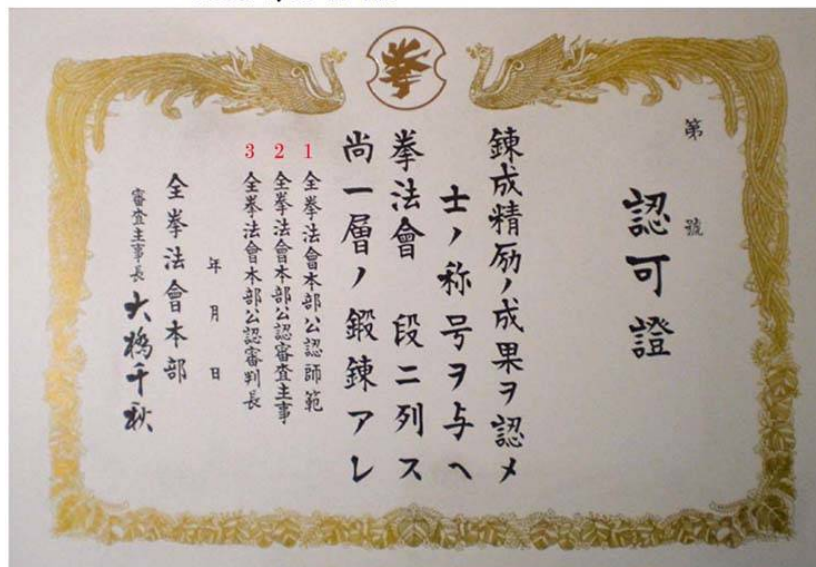 拳
第　　號
認可證
錬成精励ノ成果ヲ認メ
士ノ称号ヲ与ヘ
拳法會　段ニ列ス
尚一層ノ鍛錬アレ
1 全拳法會本部公認師範
2 全拳法會本部公認審査主事
3 全拳法會本部公認審判長
年　月　日
全拳法會本部
審査主事長 大橋千秋